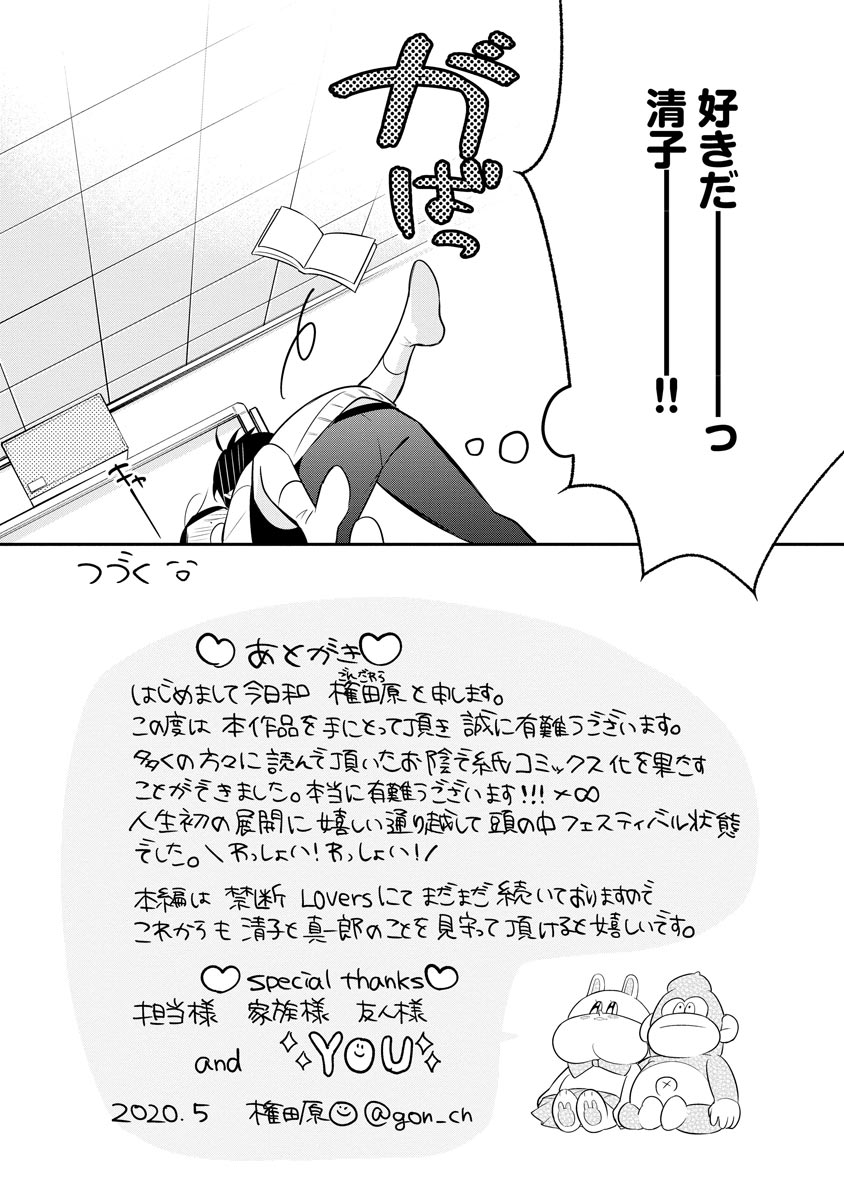 好きだ――――っ
清子――――!!
がばっ
ギャー
つづく
あとがき
ごんだわら
はじめまして今日和 権田原と申します。
この度は本作品を手にとって頂き誠に有難うございます。
多くの方々に読んで頂いたお陰で紙コミックス化を果たす
ことができました。本当に有難うございます!!!×∞
人生初の展開に嬉しい通り越して頭の中フェスティバル状態
でした。\わっしょい!わっしょい!/
本編は禁断Loversにてまだまだ続いておりますので
これからも清子と真一郎のことを見守って頂けると嬉しいです。
special thanks
担当様 家族様 友人様
and YOU
2020.5 権田原 @gon_ch